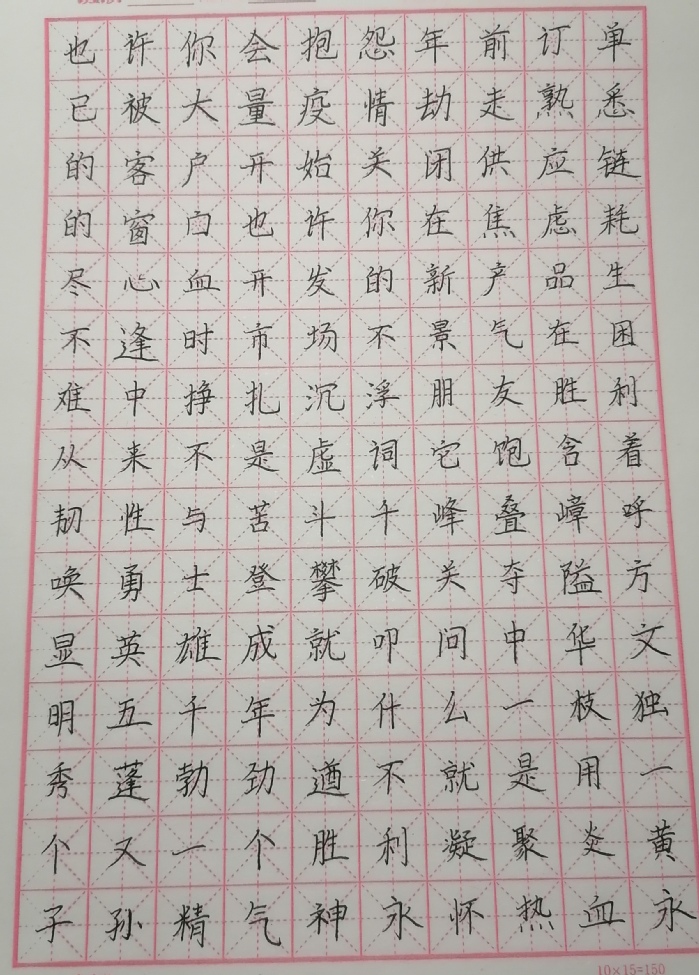 也许你会抱怨年前订单
已被大量疫情劫走熟悉
的客户开始关闭供应链
的窗口也许你在焦虑耗
尽心血开发的新产品生
不逢时市场不景气在困
难中挣扎沉浮朋友胜利
从来不是虚词它饱含着
韧性与苦斗千峰叠嶂呼
唤勇士登攀破关夺隘方
显英雄成就叩问中华文
明五千年为什么一枝独
秀蓬勃劲遒不就是用一
个又一个胜利凝聚炎黄
子孙精气神永怀热血永
10×15=150